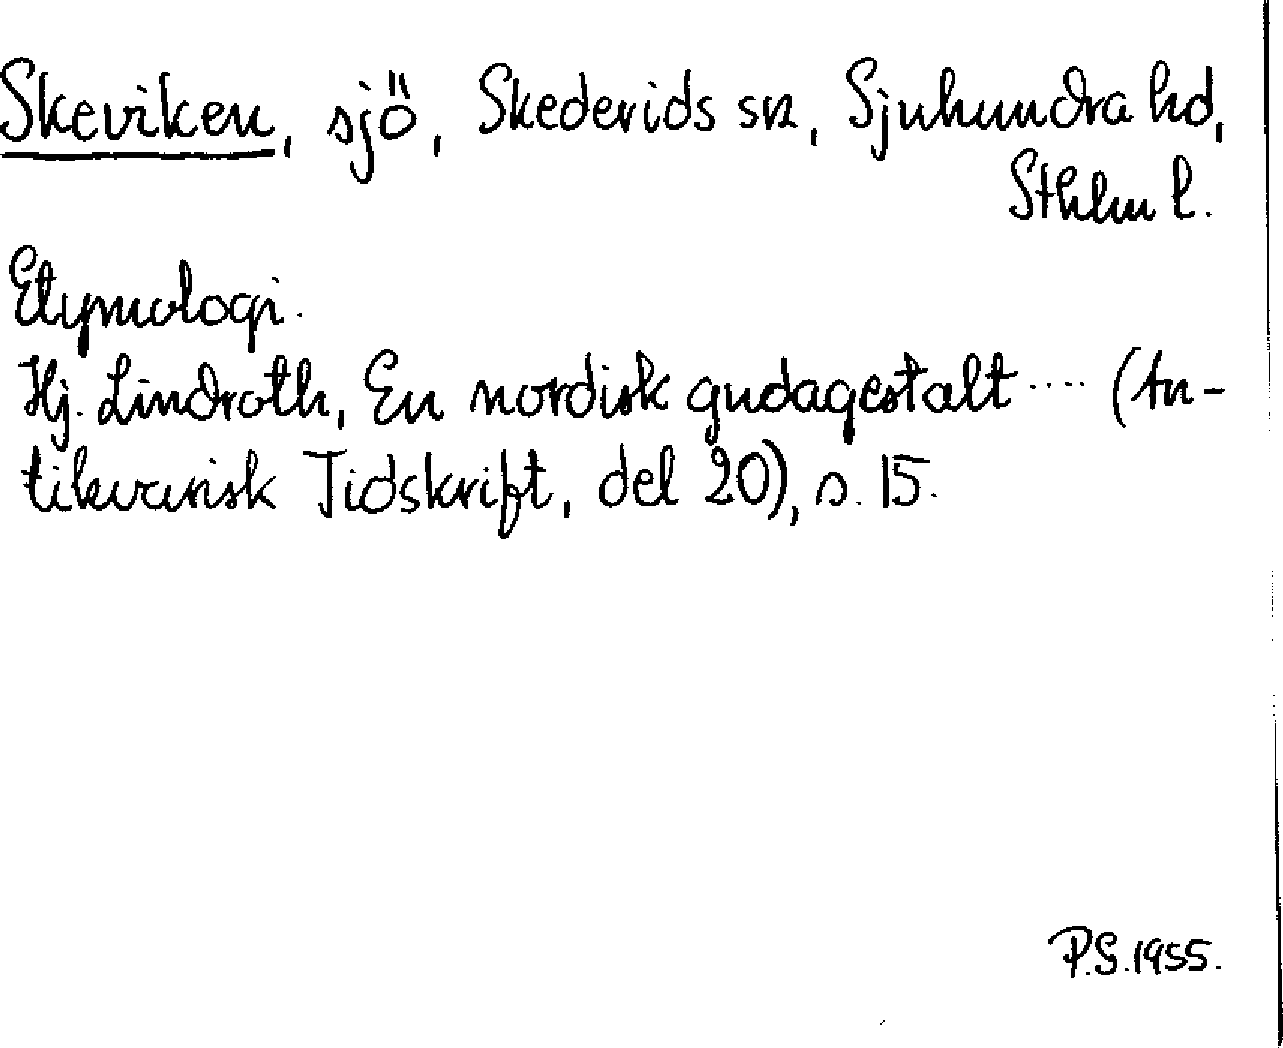 Skeviken, sjö, Skederids sn, Sjuhundra hd,
Sthlm l.
Etymologi.
Hj. Lindroth, En nordisk gudagestalt .... (An-
tikvarisk Tidskrift, del 20), s. 15.
P.S. 1955.